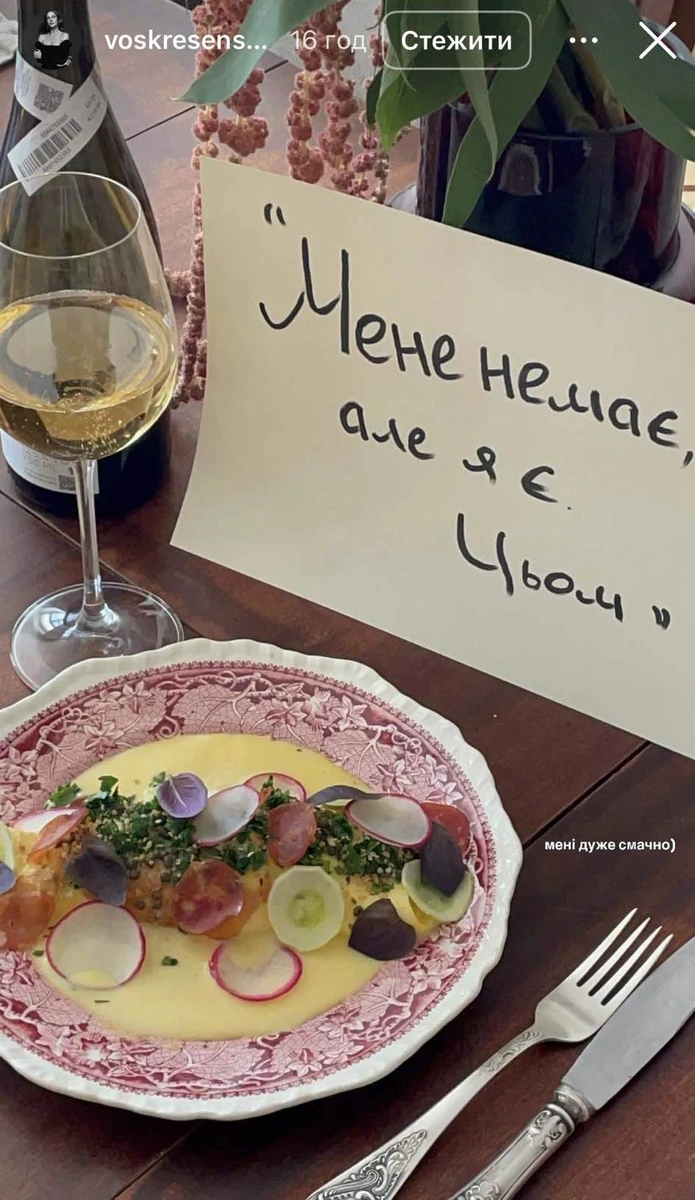 voskresens... 16 год Стежити
"Мене немає,
але я є.
Цьом"
мені дуже смачно)